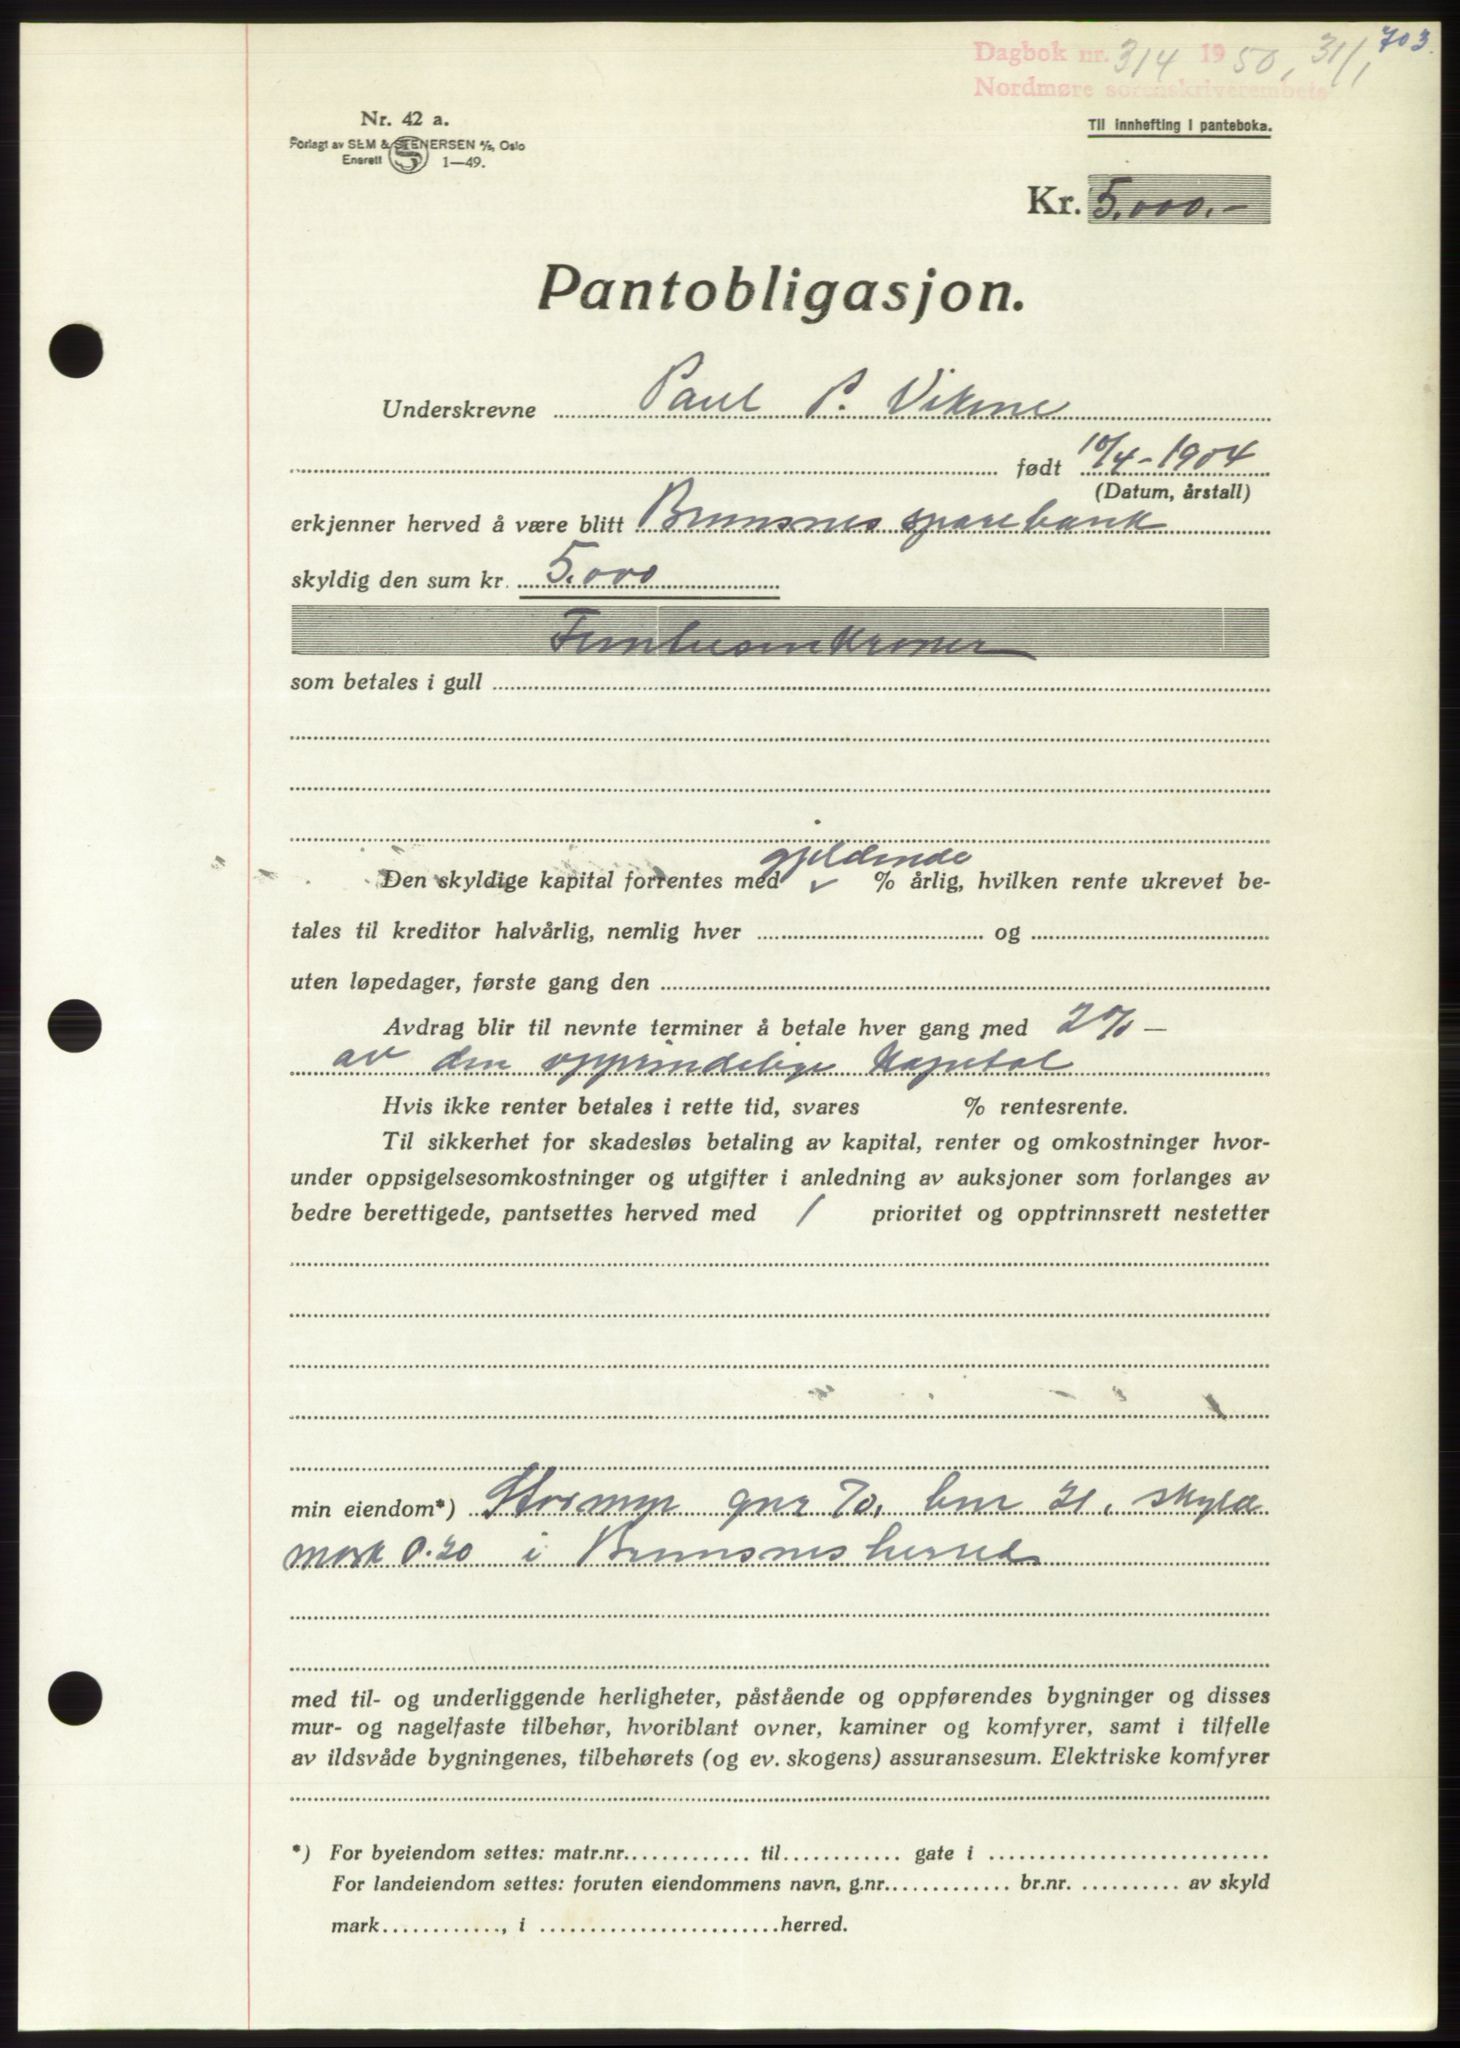 703.
Dagbok nr. 314 1950, 31/1
Nordmøre sorenskriverembete
Nr. 42 a.
Forlagt av SEM & STENERSEN A/S, Oslo
Enerett S 1—49.
Til innhefting i panteboka.
Kr. 5.000.-
Pantobligasjon.
Underskrevne Paul P. Vikene
født 10/4-1904
(Datum, årstall)
erkjenner herved å være blitt Bremsnes sparebank
skyldig den sum kr. 5.000
Femtusenkroner
som betales i gull
gjeldende
Den skyldige kapital forrentes med % årlig, hvilken rente ukrevet be-
tales til kreditor halvårlig, nemlig hver og
uten løpedager, første gang den
Avdrag blir til nevnte terminer å betale hver gang med 2% —
av den opprindelige kapital
Hvis ikke renter betales i rette tid, svares % rentesrente.
Til sikkerhet for skadesløs betaling av kapital, renter og omkostninger hvor-
under oppsigelsesomkostninger og utgifter i anledning av auksjoner som forlanges av
bedre berettigede, pantsettes herved med 1 prioritet og opptrinnsrett nestetter
min eiendom*) Stormyr gnr 70, bnr 21, skyld
mark 0.20 i Bremsnes herred
med til- og underliggende herligheter, påstående og oppførendes bygninger og disses
mur- og nagelfaste tilbehør, hvoriblant ovner, kaminer og komfyrer, samt i tilfelle
av ildsvåde bygningenes, tilbehørets (og ev. skogens) assuransesum. Elektriske komfyrer
*) For byeiendom settes: matr.nr. til gate i
For landeiendom settes: foruten eiendommens navn, g.nr. br.nr. av skyld
mark, i herred.